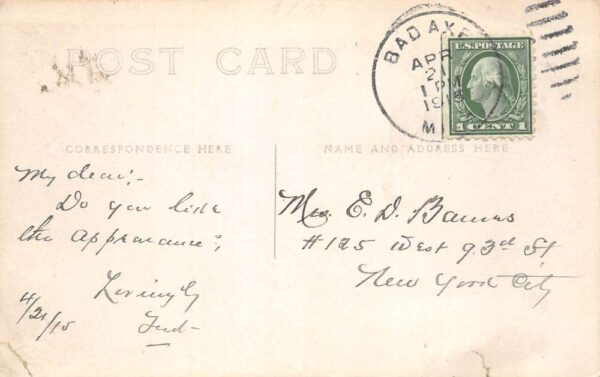 POST CARD
BAD AXE
APR
21
1 PM
1915
MI
U.S. POSTAGE
1 CENT 1
CORRESPONDENCE HERE
NAME AND ADDRESS HERE
My dear;-
Do you like
the appearance?
Lovingly
4/21/15
Mrs. E. D. Barnes
#125 West 93rd St
New York City